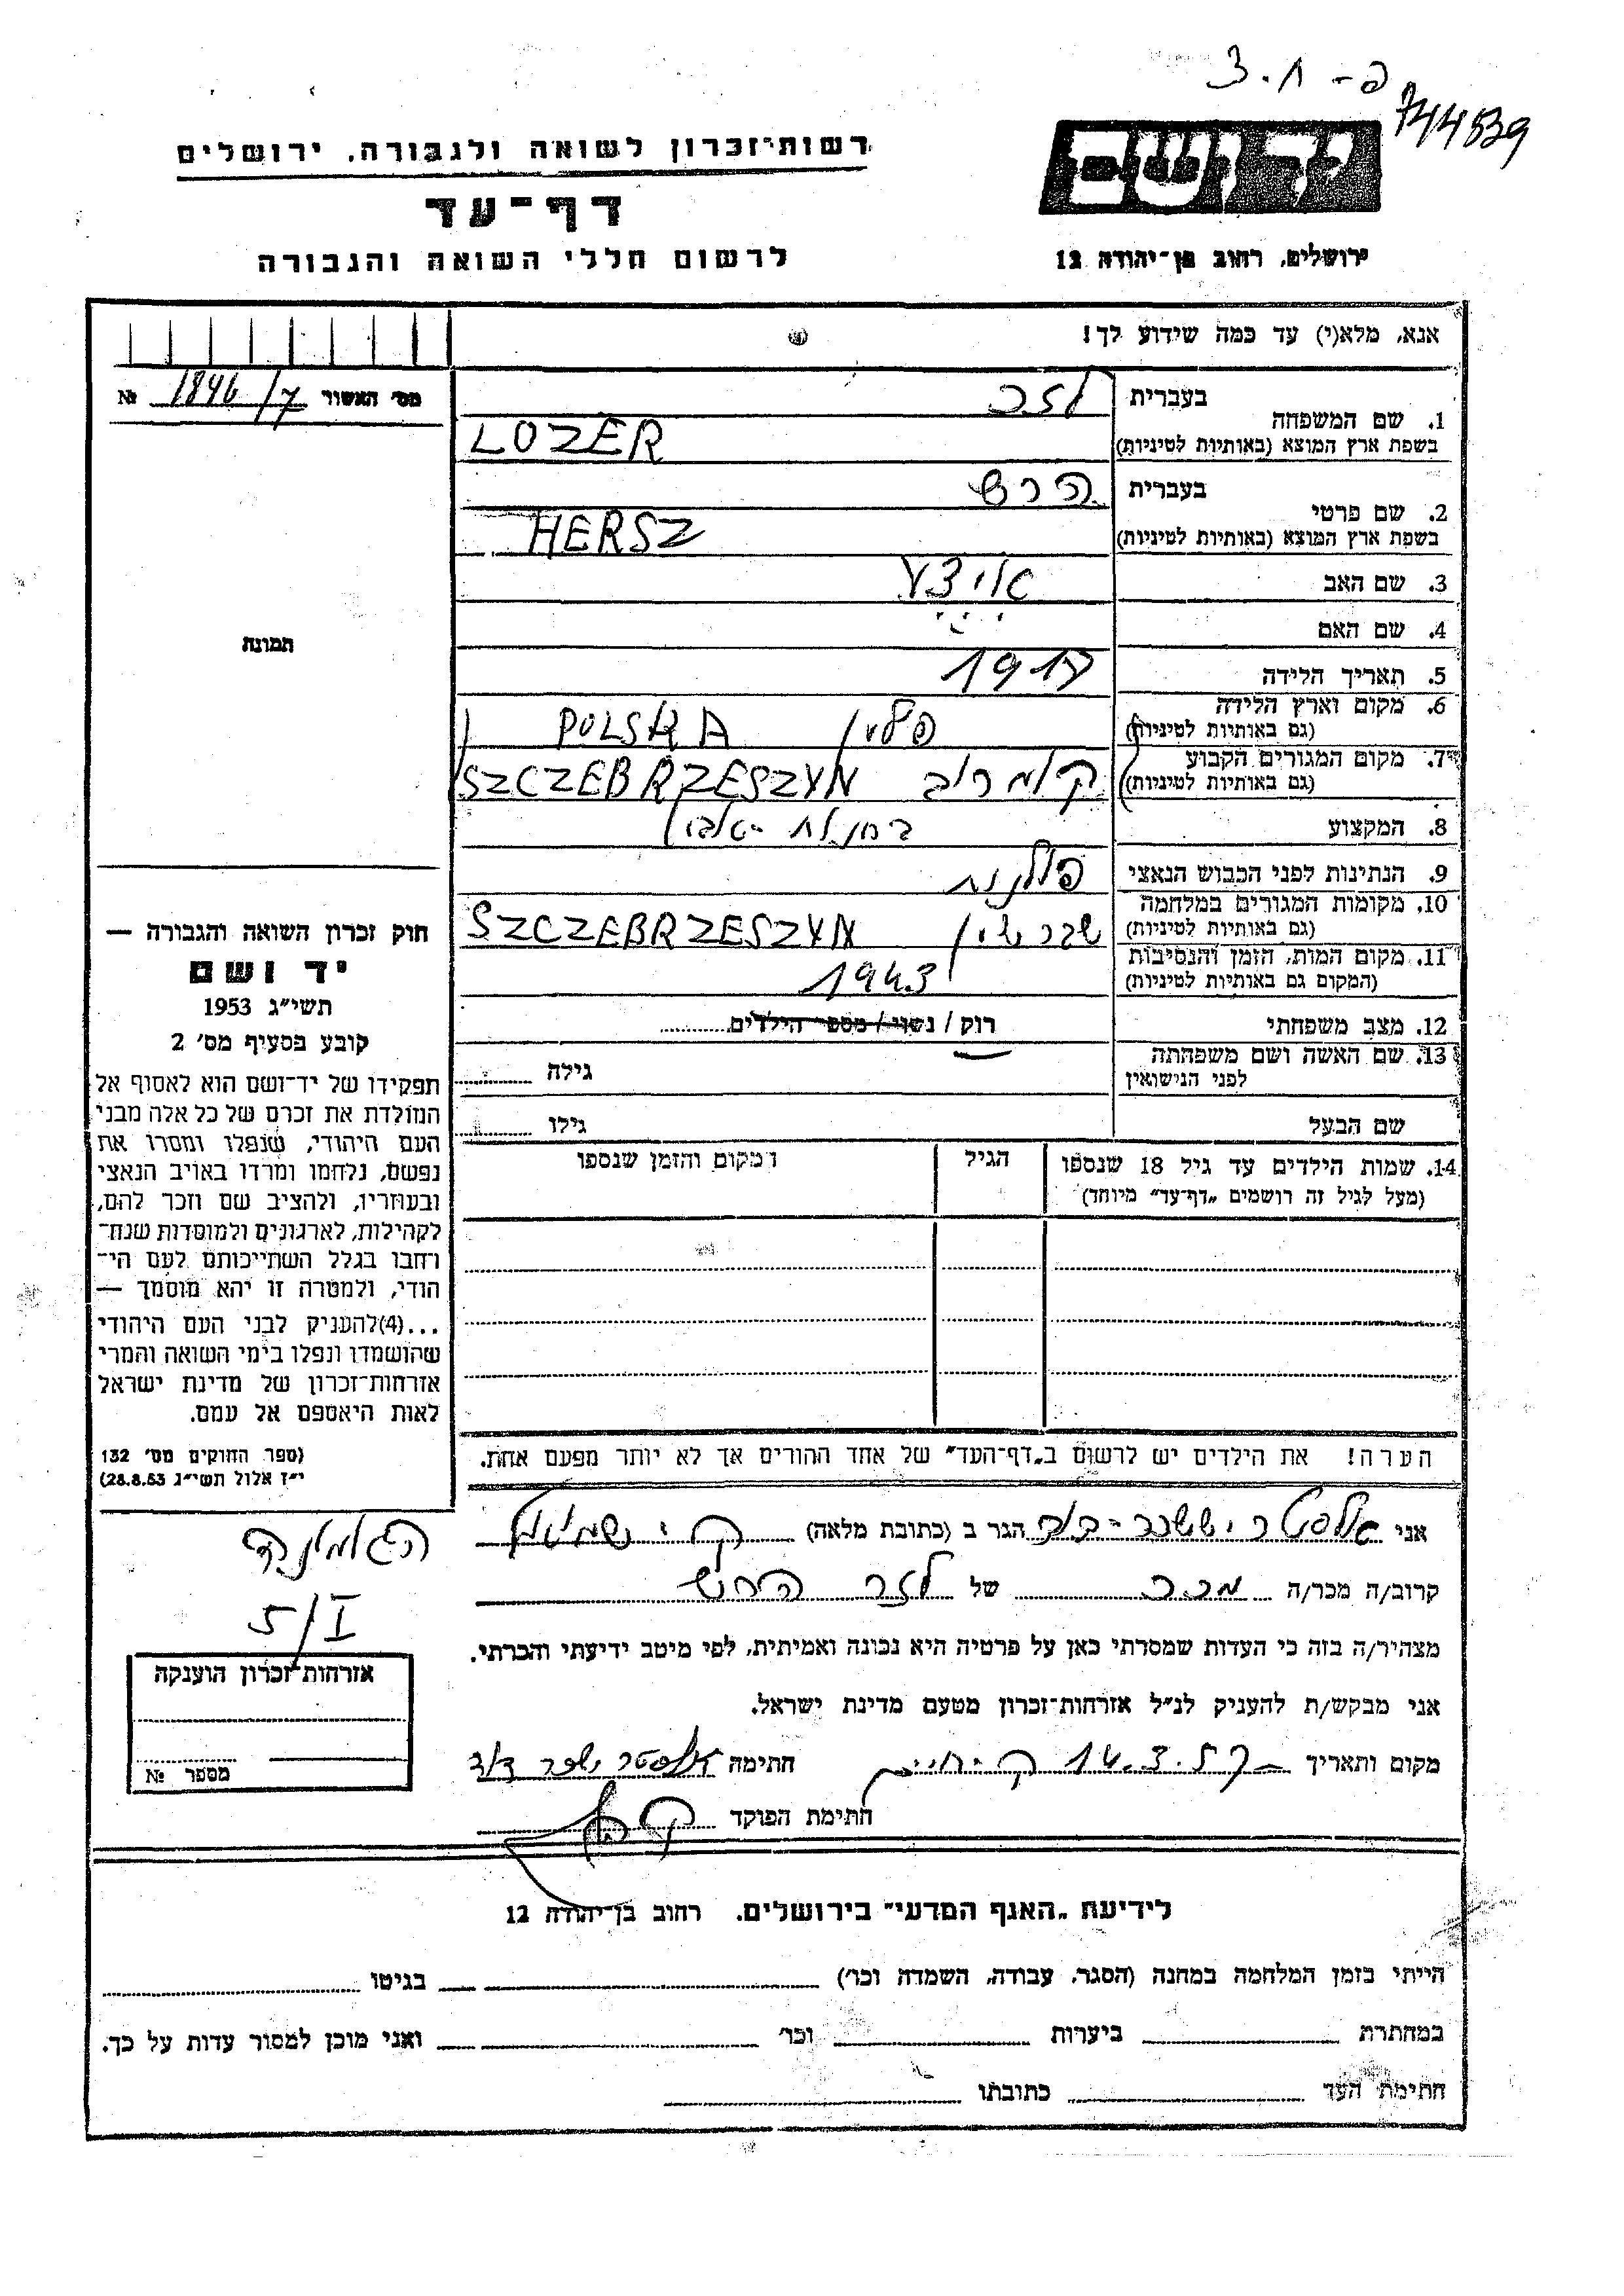 פ - 3.1
744539
רשות־זכרון לשואה ולגבורה, ירושלים
דף־עד
לרשום חללי השואה והגבורה
יד ושם
ירושלים, רחוב בן־יהודה 12
אנא, מלא(י) עד כמה שידוע לך!
מס׳ האשור 1846/7 №
תמונה
1. שם המשפחה
בעברית לזר
בשפת ארץ המוצא (באותיות לטיניות) LOZER
2. שם פרטי
בעברית הרש
בשפת ארץ המוצא (באותיות לטיניות) HERSZ
3. שם האב
4. שם האם
5. תאריך הלידה 1917
6. מקום וארץ הלידה פולין POLSKA
(גם באותיות לטיניות)
7. מקום המגורים הקבוע SZCZEBRZESZYN
(גם באותיות לטיניות)
8. המקצוע
9. הנתינות לפני הכבוש הנאצי פולנית
10. מקומות המגורים במלחמה שברשין SZCZEBRZESZYN
(גם באותיות לטיניות)
11. מקום המות, הזמן והנסיבות 1943
(המקום גם באותיות לטיניות)
12. מצב משפחתי רוק / נשוי / מספר הילדים
13. שם האשה ושם משפחתה גילה
לפני הנישואין
שם הבעל גילו
14. שמות הילדים עד גיל 18 שנספו הגיל המקום והזמן שנספו
(מעל לגיל זה רושמים „דף־עד״ מיוחד)
הערה! את הילדים יש לרשום ב„דף־העד״ של אחד ההורים אך לא יותר מפעם אחת.
חוק זכרון השואה והגבורה —
יד ושם
תשי״ג 1953
קובע בסעיף מס׳ 2
תפקידו של יד־ושם הוא לאסוף אל
המולדת את זכרם של כל אלה מבני
העם היהודי, שנפלו ומסרו את
נפשם, נלחמו ומרדו באויב הנאצי
ובעוזריו, ולהציב שם וזכר להם,
לקהילות, לארגונים ולמוסדות שנח־
רחבו בגלל השתייכותם לעם הי־
הודי, ולמטרה זו יהא מוסמך —
...(4)להעניק לבני העם היהודי
שהושמדו ונפלו בימי השואה והמרי
אזרחות־זכרון של מדינת ישראל
לאות היאספם אל עמם.
(ספר החוקים מס׳ 132
י״ז אלול תשי״ג 28.8.53)
5/I
אזרחות־זכרון הוענקה
מספר №
אני אלפטר יששכר־דוד הגר ב (כתובת מלאה) ק׳
קרוב/ה מכר/ה מכר של לזר הרש
מצהיר/ה בזה כי העדות שמסרתי כאן על פרטיה היא נכונה ואמיתית, לפי מיטב ידיעתי והכרתי.
אני מבקש/ת להעניק לנ״ל אזרחות־זכרון מטעם מדינת ישראל.
מקום ותאריך 14.3.57 חתימה
חתימת הפוקד
לידיעת „האגף המדעי״ בירושלים. רחוב בן־יהודה 12
הייתי בזמן המלחמה במחנה (הסגר, עבודה, השמדה וכו׳) בגיטו
במחתרת ביערות וכו׳ ואני מוכן למסור עדות על כך.
חתימת העד כתובתו